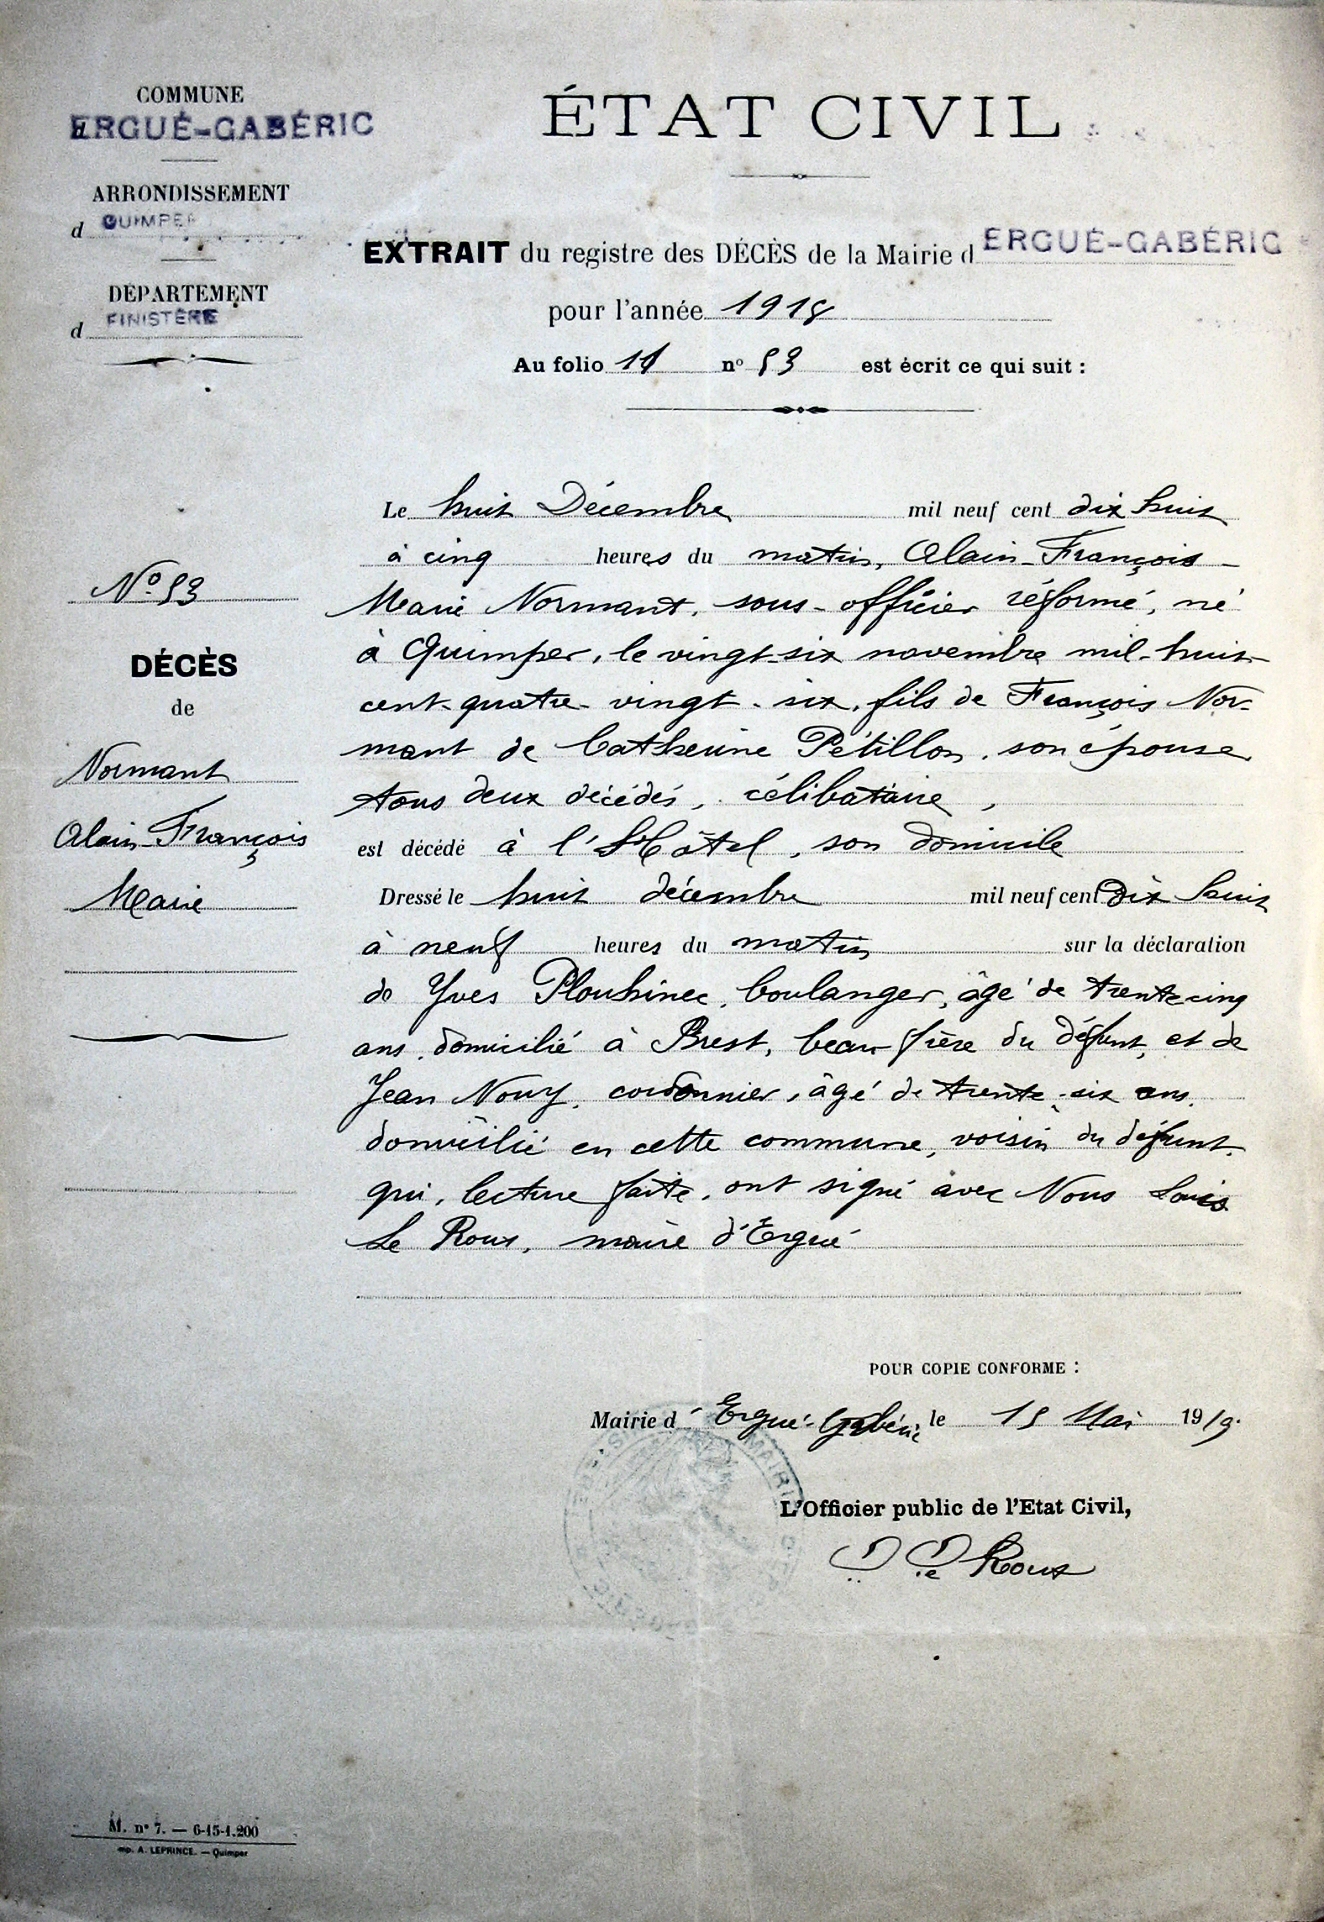 COMMUNE
ERGUÉ-GABÉRIC
ARRONDISSEMENT
d QUIMPER
DÉPARTEMENT
d FINISTÈRE
ÉTAT CIVIL
EXTRAIT du registre des DÉCÈS de la Mairie d ERGUÉ-GABÉRIC
pour l'année 1918
Au folio 11 n° 53 est écrit ce qui suit :
N° 53
DÉCÈS
de
Normant
Alain François
Marie
Le huit Décembre mil neuf cent dix huit
à cinq heures du matin, Alain-François-
Marie Normant, sous-officier réformé, né
à Quimper, le vingt-six novembre mil-huit-
cent-quatre-vingt-six, fils de François Nor-
mant de Catherine Pétillon, son épouse
tous deux décédés, célibataire,
est décédé à l'Hôtel, son domicile
Dressé le huit décembre mil neuf cent Dix huit
à neuf heures du matin sur la déclaration
de Yves Plouhinec, boulanger, âgé de trente-cinq
ans, domicilié à Brest, beau frère du défunt, et de
Jean Nouy, cordonnier, âgé de trente-six ans,
domicilié en cette commune, voisin du défunt,
qui, lecture faite, ont signé avec Nous Louis
Le Roux, maire d'Ergué
POUR COPIE CONFORME :
Mairie d'Ergué-Gabéric, le 15 Mai 1919.
L'Officier public de l'Etat Civil,
Le Roux
M. n° 7. — 6-15-1.200
Imp. A. LEPRINCE. — Quimper